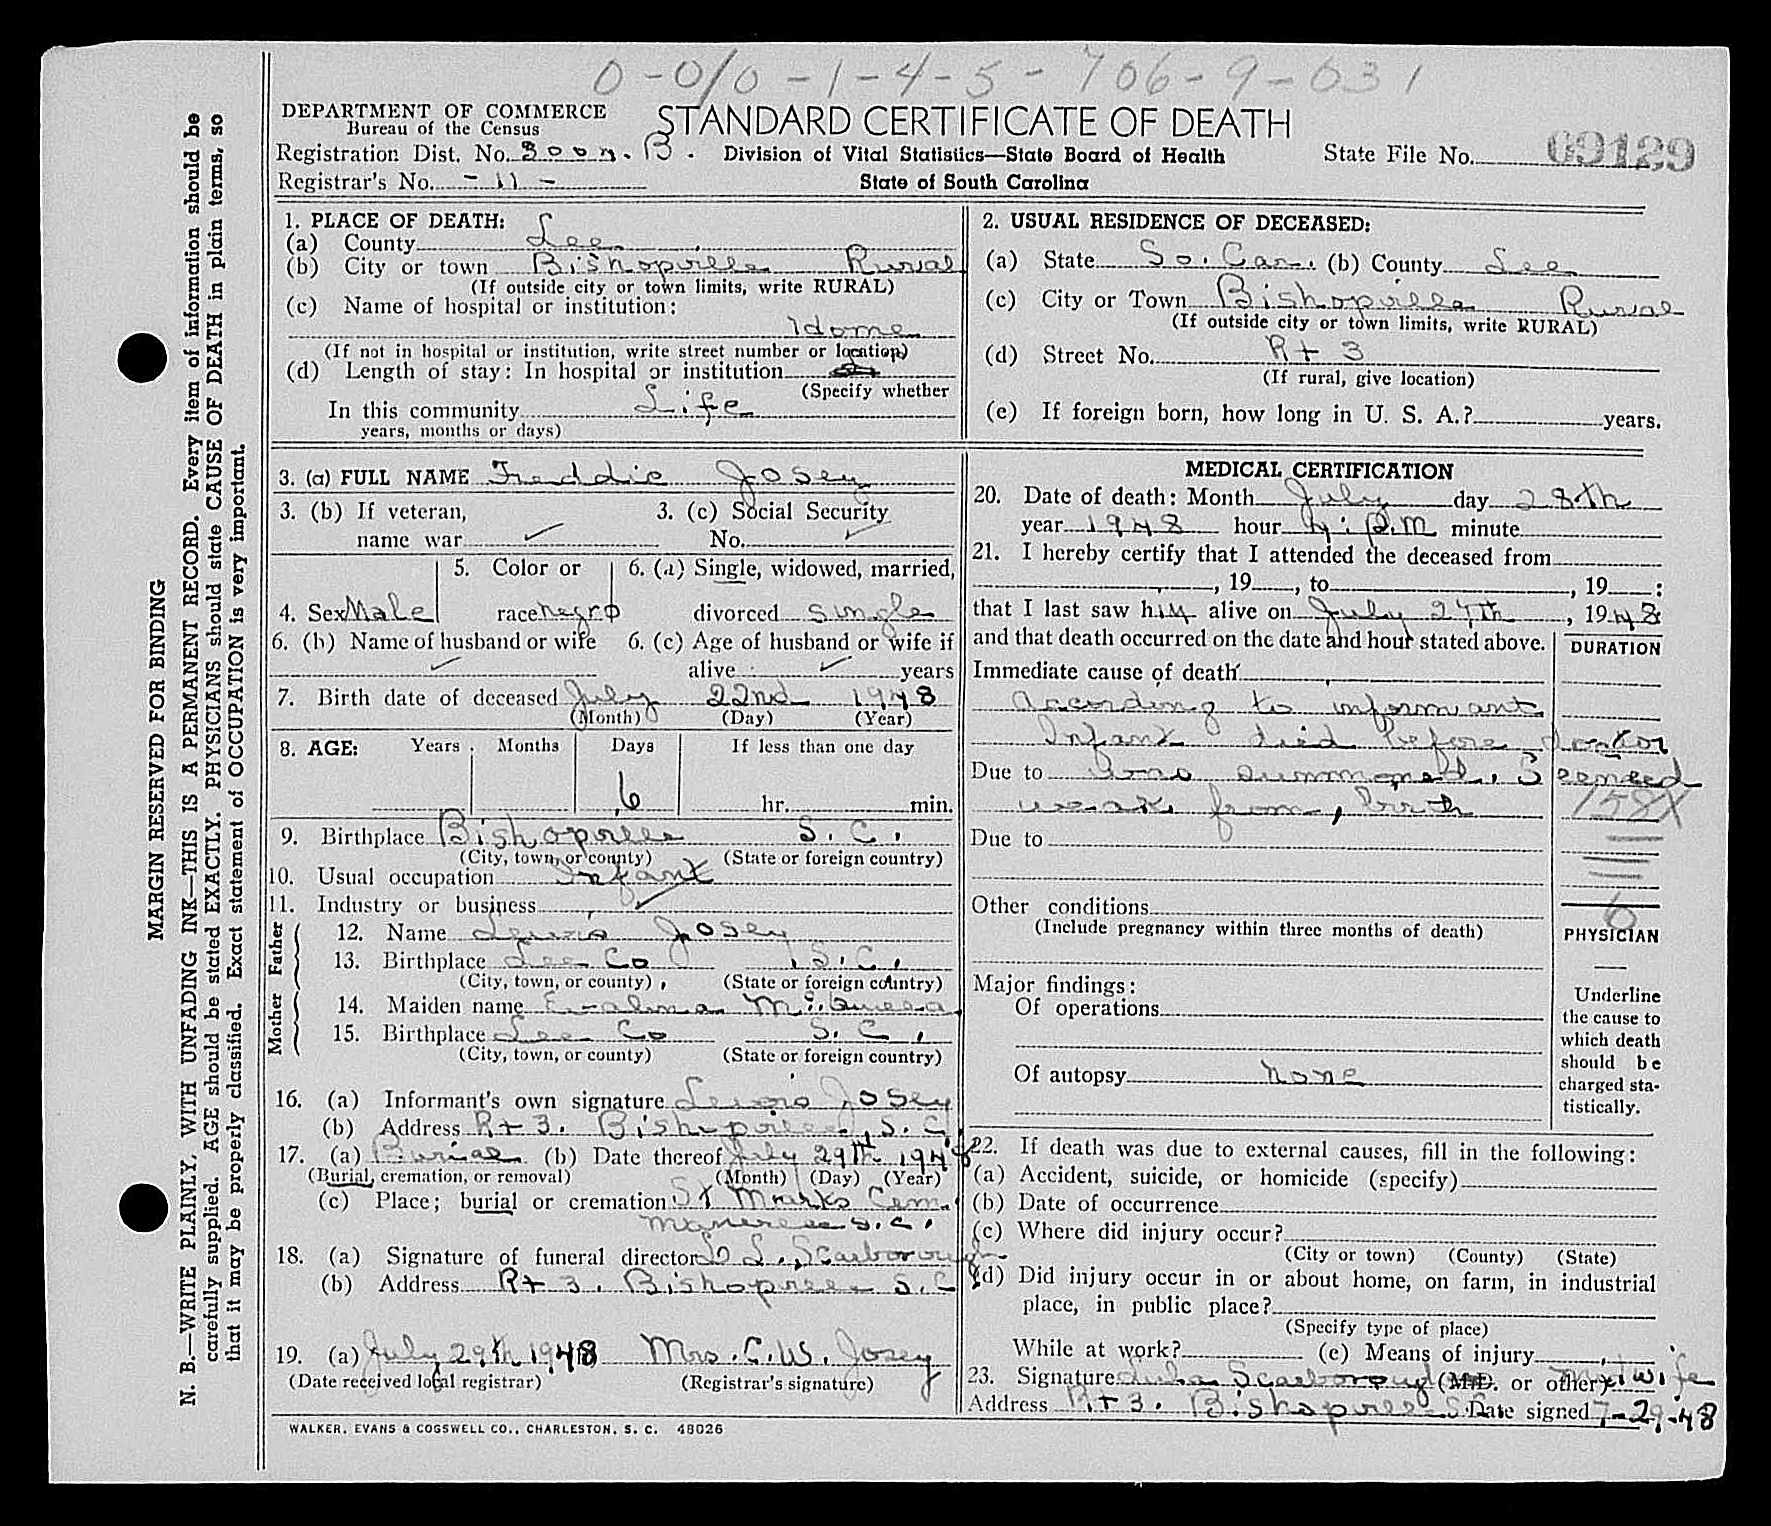 0-0/0-1-4-5-706-9-631
DEPARTMENT OF COMMERCE
Bureau of the Census
STANDARD CERTIFICATE OF DEATH
Registration Dist. No. 3007. B.
Division of Vital Statistics—State Board of Health
State File No. 09129
Registrar's No. -11-
State of South Carolina
1. PLACE OF DEATH:
(a) County Lee
(b) City or town Bishopville Rural
(If outside city or town limits, write RURAL)
(c) Name of hospital or institution:
Home
(If not in hospital or institution, write street number or location)
(d) Length of stay: In hospital or institution
(Specify whether
In this community Life
years, months or days)
2. USUAL RESIDENCE OF DECEASED:
(a) State So. Car. (b) County Lee
(c) City or Town Bishopville Rural
(If outside city or town limits, write RURAL)
(d) Street No. Rt 3
(If rural, give location)
(e) If foreign born, how long in U. S. A.? years.
3. (a) FULL NAME Freddie Josey
3. (b) If veteran, 3. (c) Social Security
name war ✓ No. ✓
5. Color or 6. (a) Single, widowed, married,
4. Sex Male race negro divorced single
6. (b) Name of husband or wife 6. (c) Age of husband or wife if
✓ alive ✓ years
7. Birth date of deceased July 22nd 1948
(Month) (Day) (Year)
8. AGE: Years Months Days If less than one day
6 hr. min.
9. Birthplace Bishopville S. C.
(City, town, or county) (State or foreign country)
10. Usual occupation Infant
11. Industry or business ✓
Father
12. Name Lewis Josey
13. Birthplace Lee Co S. C.
(City, town, or county) (State or foreign country)
Mother
14. Maiden name
15. Birthplace Lee Co S. C.
(City, town, or county) (State or foreign country)
16. (a) Informant's own signature Lewis Josey
(b) Address Rt 3. Bishopville, S. C.
17. (a) Burial (b) Date thereof July 29th 1948
(Burial, cremation, or removal) (Month) (Day) (Year)
(c) Place; burial or cremation St Marks Cem.
S. C.
18. (a) Signature of funeral director L. Scarborough
(b) Address Rt 3. Bishopville S. C.
19. (a) July 29th 1948 Mrs. C. W. Josey
(Date received local registrar) (Registrar's signature)
WALKER, EVANS & COGSWELL CO., CHARLESTON, S. C. 48026
MEDICAL CERTIFICATION
20. Date of death: Month July day 28th
year 1948 hour 4: P.M minute
21. I hereby certify that I attended the deceased from
, 19 , to , 19 ;
that I last saw him alive on July 27th, 1948
and that death occurred on the date and hour stated above.
DURATION
Immediate cause of death
According to informant
Infant died before doctor
Due to was summoned. Seemed
weak from birth
158X
Due to
Other conditions
(Include pregnancy within three months of death)
6
PHYSICIAN
Major findings:
Of operations
Of autopsy none
Underline
the cause to
which death
should be
charged sta-
tistically.
22. If death was due to external causes, fill in the following:
(a) Accident, suicide, or homicide (specify)
(b) Date of occurrence
(c) Where did injury occur?
(City or town) (County) (State)
(d) Did injury occur in or about home, on farm, in industrial
place, in public place?
(Specify type of place)
While at work? (e) Means of injury
23. Signature Scarborough (M.D. or other) midwife
Address Rt 3. Bishopville S.C. Date signed 7-29-48
MARGIN RESERVED FOR BINDING
N. B.—WRITE PLAINLY, WITH UNFADING INK—THIS IS A PERMANENT RECORD. Every item of information should be
carefully supplied. AGE should be stated EXACTLY. PHYSICIANS should state CAUSE OF DEATH in plain terms, so
that it may be properly classified. Exact statement of OCCUPATION is very important.